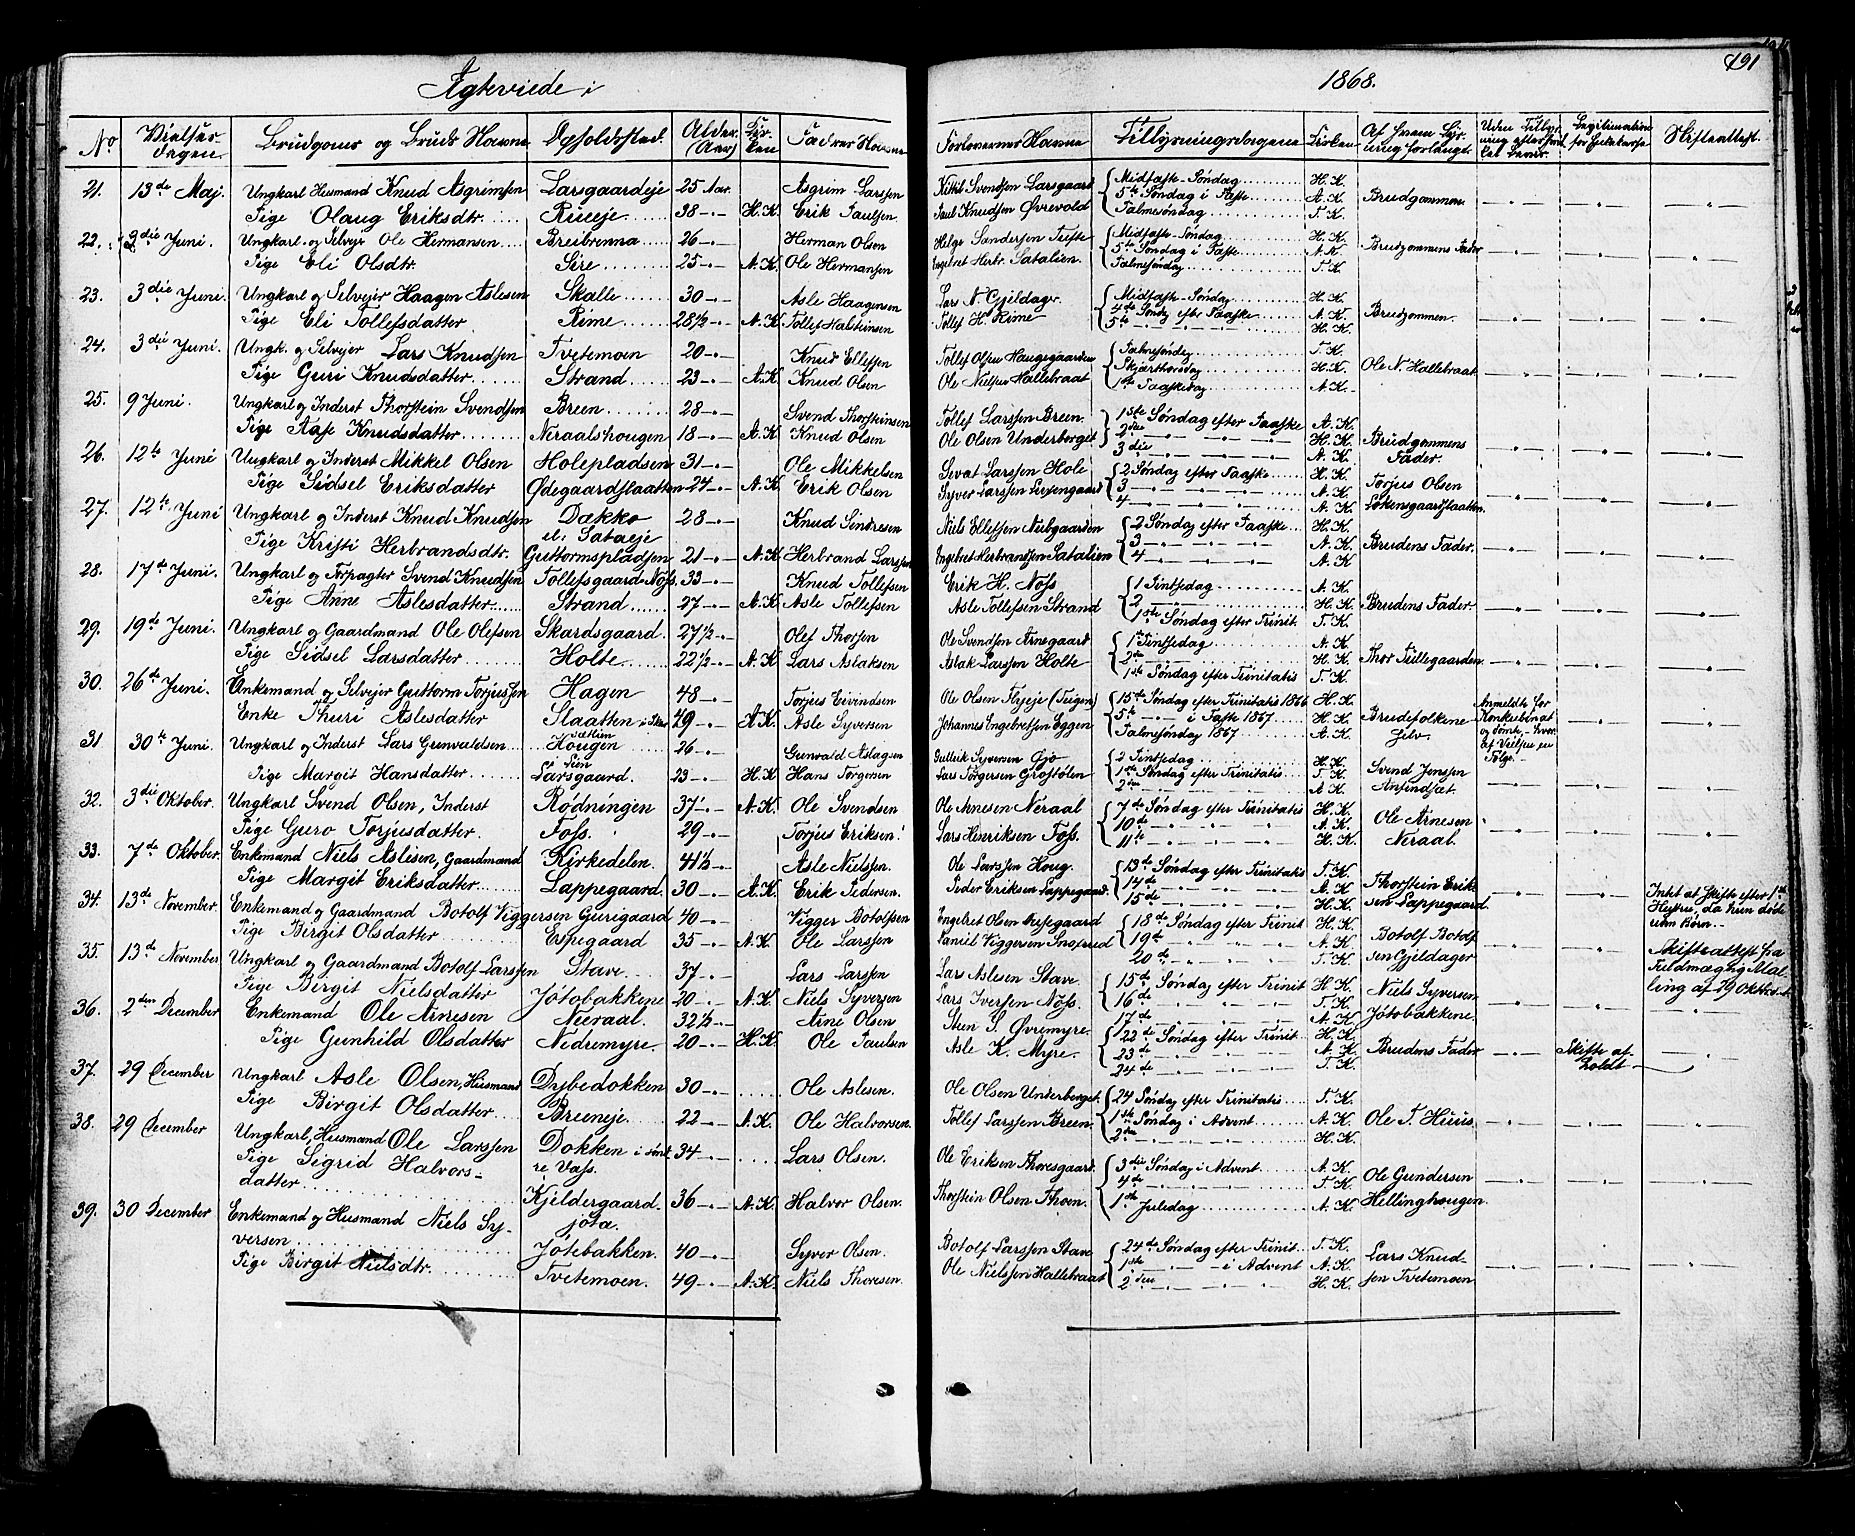 Ægteviede i 1868. 191
No Vielses-Dagen. Brudgoms og Bruds Navne Opholdsted. Alder. (Aar) Kirken Fædres Navne Forloveres Navne Tillysningsdagene Kirken Af hvem Lysning forlangt. Uden Tillysning efter Kongelig Bevis. Legitimation for Skifteattest.
21. 13de Maj. Ungkarl Husmand Knud Asgrimsen Larsgaardeje 25 Aar. Asgrim Larssen Kittil Svendsen Larsgaard Midfaste-Søndag H. K. Brudgommen
Pige Olaug Eriksdtr. 38 H. K. Erik Paulsen Paul Knudsen Øvrevold 5te Søndag i Faste A. K.
Palmesøndag T. K.
22. 3die Juni. Ungkarl og Selvejer Ole Hermansen Breibrenna 26 Herman Olsen Helge Sandersen Tufte Midfaste-Søndag H. K. Brudgommens Fader
Pige Eli Olsdtr. Sire 25 A. K. Ole Hermansen Engebret Herbr. Satalien. 5te Søndag i Faste A. K.
Palmesøndag T. K.
23. 3die Juni. Ungkarl og Selvejer Haagen Aslesen Skalle 30 Asle Haagensen Lars N. Gjeldager Midfaste-Søndag H. K. Brudgommen.
Pige Eli Tollefsdatter Rime 28½ A. K. Tollef Halstensen Tollef H. Rime 4de Søndag efter Paaske A. K.
5te H. K.
24. 3die Juni. Ungk. og Selvejer Lars Knudsen Tvetemoen 20 Knud Ellefsen Tollef Olsen Haugegaarden Palmesøndag T. K. Ole N. Hallebraat
Pige Guri Knudsdatter Strand 23 A. K. Knud Olsen Ole Nielsen Hallebraat Skjærthorsdag H. K.
1ste Paaskedag A. K.
25. 9 Juni. Ungkarl og Inderst Thorstein Svendsen Breen 28 Svend Thorsteinsen Tollef Larssen Breen 1ste Søndag efter Paaske A. K. Brudgommens Fader.
Pige Aase Knudsdatter Neraalshougen 18 A. K. Knud Olsen Ole Olsen Underberget 2den H. K.
3die A. K.
26. 12te Juni Ungkarl og Inderst Mikkel Olsen Holepladsen 31 Ole Mikkelsen Sevat Larssen Hole 2 Søndag efter Paaske H. K. Torjus Olsen
Pige Sidsel Eriksdatter Ødegaardslaatten 24 A. K. Erik Olsen Syver Larssen 3 A. K.
4 A. K.
27. 12te Juni Ungkarl og Inderst Knud Knudsen Dækko 28 Knud Sindresen Niels Ellefsen Nubgaarden 2 Søndag efter Paaske H. K. Brudens Fader.
Pige Kristi Herbrandsdtr. Guttormspladsen 21 A. K. Herbrand Larssen Engebret Herbrandsen Satalien 3 A. K.
4 A. K
28. 17de Juni. Ungkarl og Forpagter Svend Knudsen Tollefsgaard Noss. 33 Knud Tollefsen Erik H. Noss 1 Pintsedag A. K. Brudens Fader.
Pige Anne Aslesdatter Strand 27 A. K Asle Tollefsen Asle Tollefsen Strand 2 H. K.
1ste Søndag efter Trinit T. K.
29. 19de Juni. Ungkarl og Gaardmand Ole Olefsen Skardsgaard. 27½ Olef Thorsen Ole Svendsen Arnegaard 1 Pintsedag A. K.
Pige Sidsel Larsdatter Holte 22½ A. K Lars Aslaksen Aslak Larssen Holte 2den H. K.
1ste Søndag efter Trinitatis T. K.
30. 26de Juni. Enkemand og Selvejer Guttorm Torjussen Hagen 48 Torjus Eivindsen Ole Olsen Flyeje (Teigen) 15de Søndag efter Trinitatis 1866 H. K. Brudefolkene selv. Anmeldte for Konkubinat
Enke Thuri Aslesdatter Slaatten 29 A. K. Asle Syversen Johannes Engebretsen Eggen 5te i Faste 1867 H. K.
Palmesøndag 1867 A. K. Følge.
31 30te Juni. Ungkarl og Inderst Lars Grunvaldsen Hougen 26 Grunvald Aslagsen Gullerik Syversen Gjø 2 Pintsedag H. K. Svend Jenssen
Pige Margit Hansdatter Larsgaard. 23 H. K Hans Torgersen Lars Torgersen Grøstølen 1ste Søndag efter Trinitatis T. K. Anfindsæt.
2den A. K
32. 3die Oktober. Ungkarl Svend Olsen, Inderst Rødningen 37 A. K. Ole Svendsen Ole Arnesen Neraal 7de Søndag efter Trinitatis H. K. Ole Arnesen
Pige Guro Torjusdatter. Foss. 29 Torjus Eriksen Lars Henriksen Foss. 10de A. K. Neraal.
11te H. K.
33. 7de Oktober. Enkemand Niels Aslesen, Gaardmand Kirkedelen. 41½ Asle Nielsen. Ole Larssen Houg. 13de Søndag efter Trinitatis T. K. Thorstein Erik-
Pige Margit Eriksdatter Lappegaard. 30 A. K Erik Pedersen. Peder Eriksen Lappegaard. 14de A. K. sen Lappegaard
15de H. K.
34. 13de November. Enkemand og Gaardmand Botolf Viggersen Gurigaard 40 Vigger Botolfsen Engebret Olsen 18de Søndag efter Trinit H. K. Botolf Botolf Intet at skifte efter 1ste Hustru, da hun døde uden Børn.
Pige Birgit Olsdatter Espegaard 35 A. K. Ole Larssen Daniel Viggersen 19de A. K. sen Gjeldager
20de T. K.
35. 13de November Ungkarl og Gaardmand Botolf Larssen Stave 37 Lars Larssen Lars Aslesen Stave 15de Søndag efter Trinit H. K. Niels Syversen Skifteattest fra
Pige Birgit Nielsdatter Jøtobakkene 20 A. K. Niels Syversen Lars Iversen Noss. 16de T. K. Jøtobakkene.
17de A. K.
36. 2den December Enkemand Ole Arnesen Neeraal. 32½ Arne Olsen Sten S. Øvremyre. 22de Søndag efter Trinit H. K. Brudens Fader Skifte af-holdt
Pige Gunhild Olsdatter Nedremyre. 20 H. K Ole Paulsen Asle K. Myre. 23de A. K
24de T. K.
37. 29 December Ungkarl Asle Olsen, Husmand Dybedokken 30 Ole Aslesen. Ole Olsen Underberget. 24 Søndag efter Trinitatis T. K. Ole T. Huus
Pige Birgit Olsdatter Breeneje. 22 A. K. Ole Halvorsen. Tollef Larssen Breen 1ste Søndag i Advent A. K.
2den H. K.
38. 29 December Ungkarl, Husmand Ole Larssen Dokken i søndre Vass. 34 Lars Olsen. Ole Eriksen Thoresgaard. 3die Søndag i Advent A. K. Ole Gundersen
Pige Sigrid Halvors-datter Kjeldergaardjota. 36 A. K. Halvor Olsen. Thorstein Olsen Thoen. 4de T. K. Hellinghougen
1ste Juledag A. K
39. 30 December Enkemand og Husmand Niels Sy-versen Jøtebakken. 40 Syver Olsen. Botolf Larssen Stave 24de Søndag efter Trinit T. K. Lars Knud-
Pige Birgit Nielsdtr. Tvetemoen. 49 A. K. Niels Thoresen. Ole Nielssen Hallebraat 1ste i Advent A. K. sen Tvetemoen
2den H. K